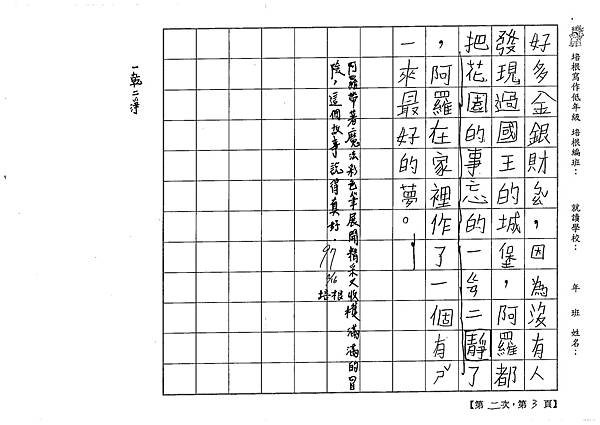 培根寫作低年級 培根編班： 就讀學校： 年 班 姓名：
好多金銀財ㄅㄠ，因為沒有人
發現過國王的城堡，阿羅都
把花園的事忘的一ㄍㄢ二靜了
，阿羅在家裡作了一個有ㄕ
一來最好的夢。
阿羅帶著魔法彩色筆展開精采又收穫滿滿的冒
險，這個故事說得真好。
培根
一乾二淨
【第二次，第3頁】